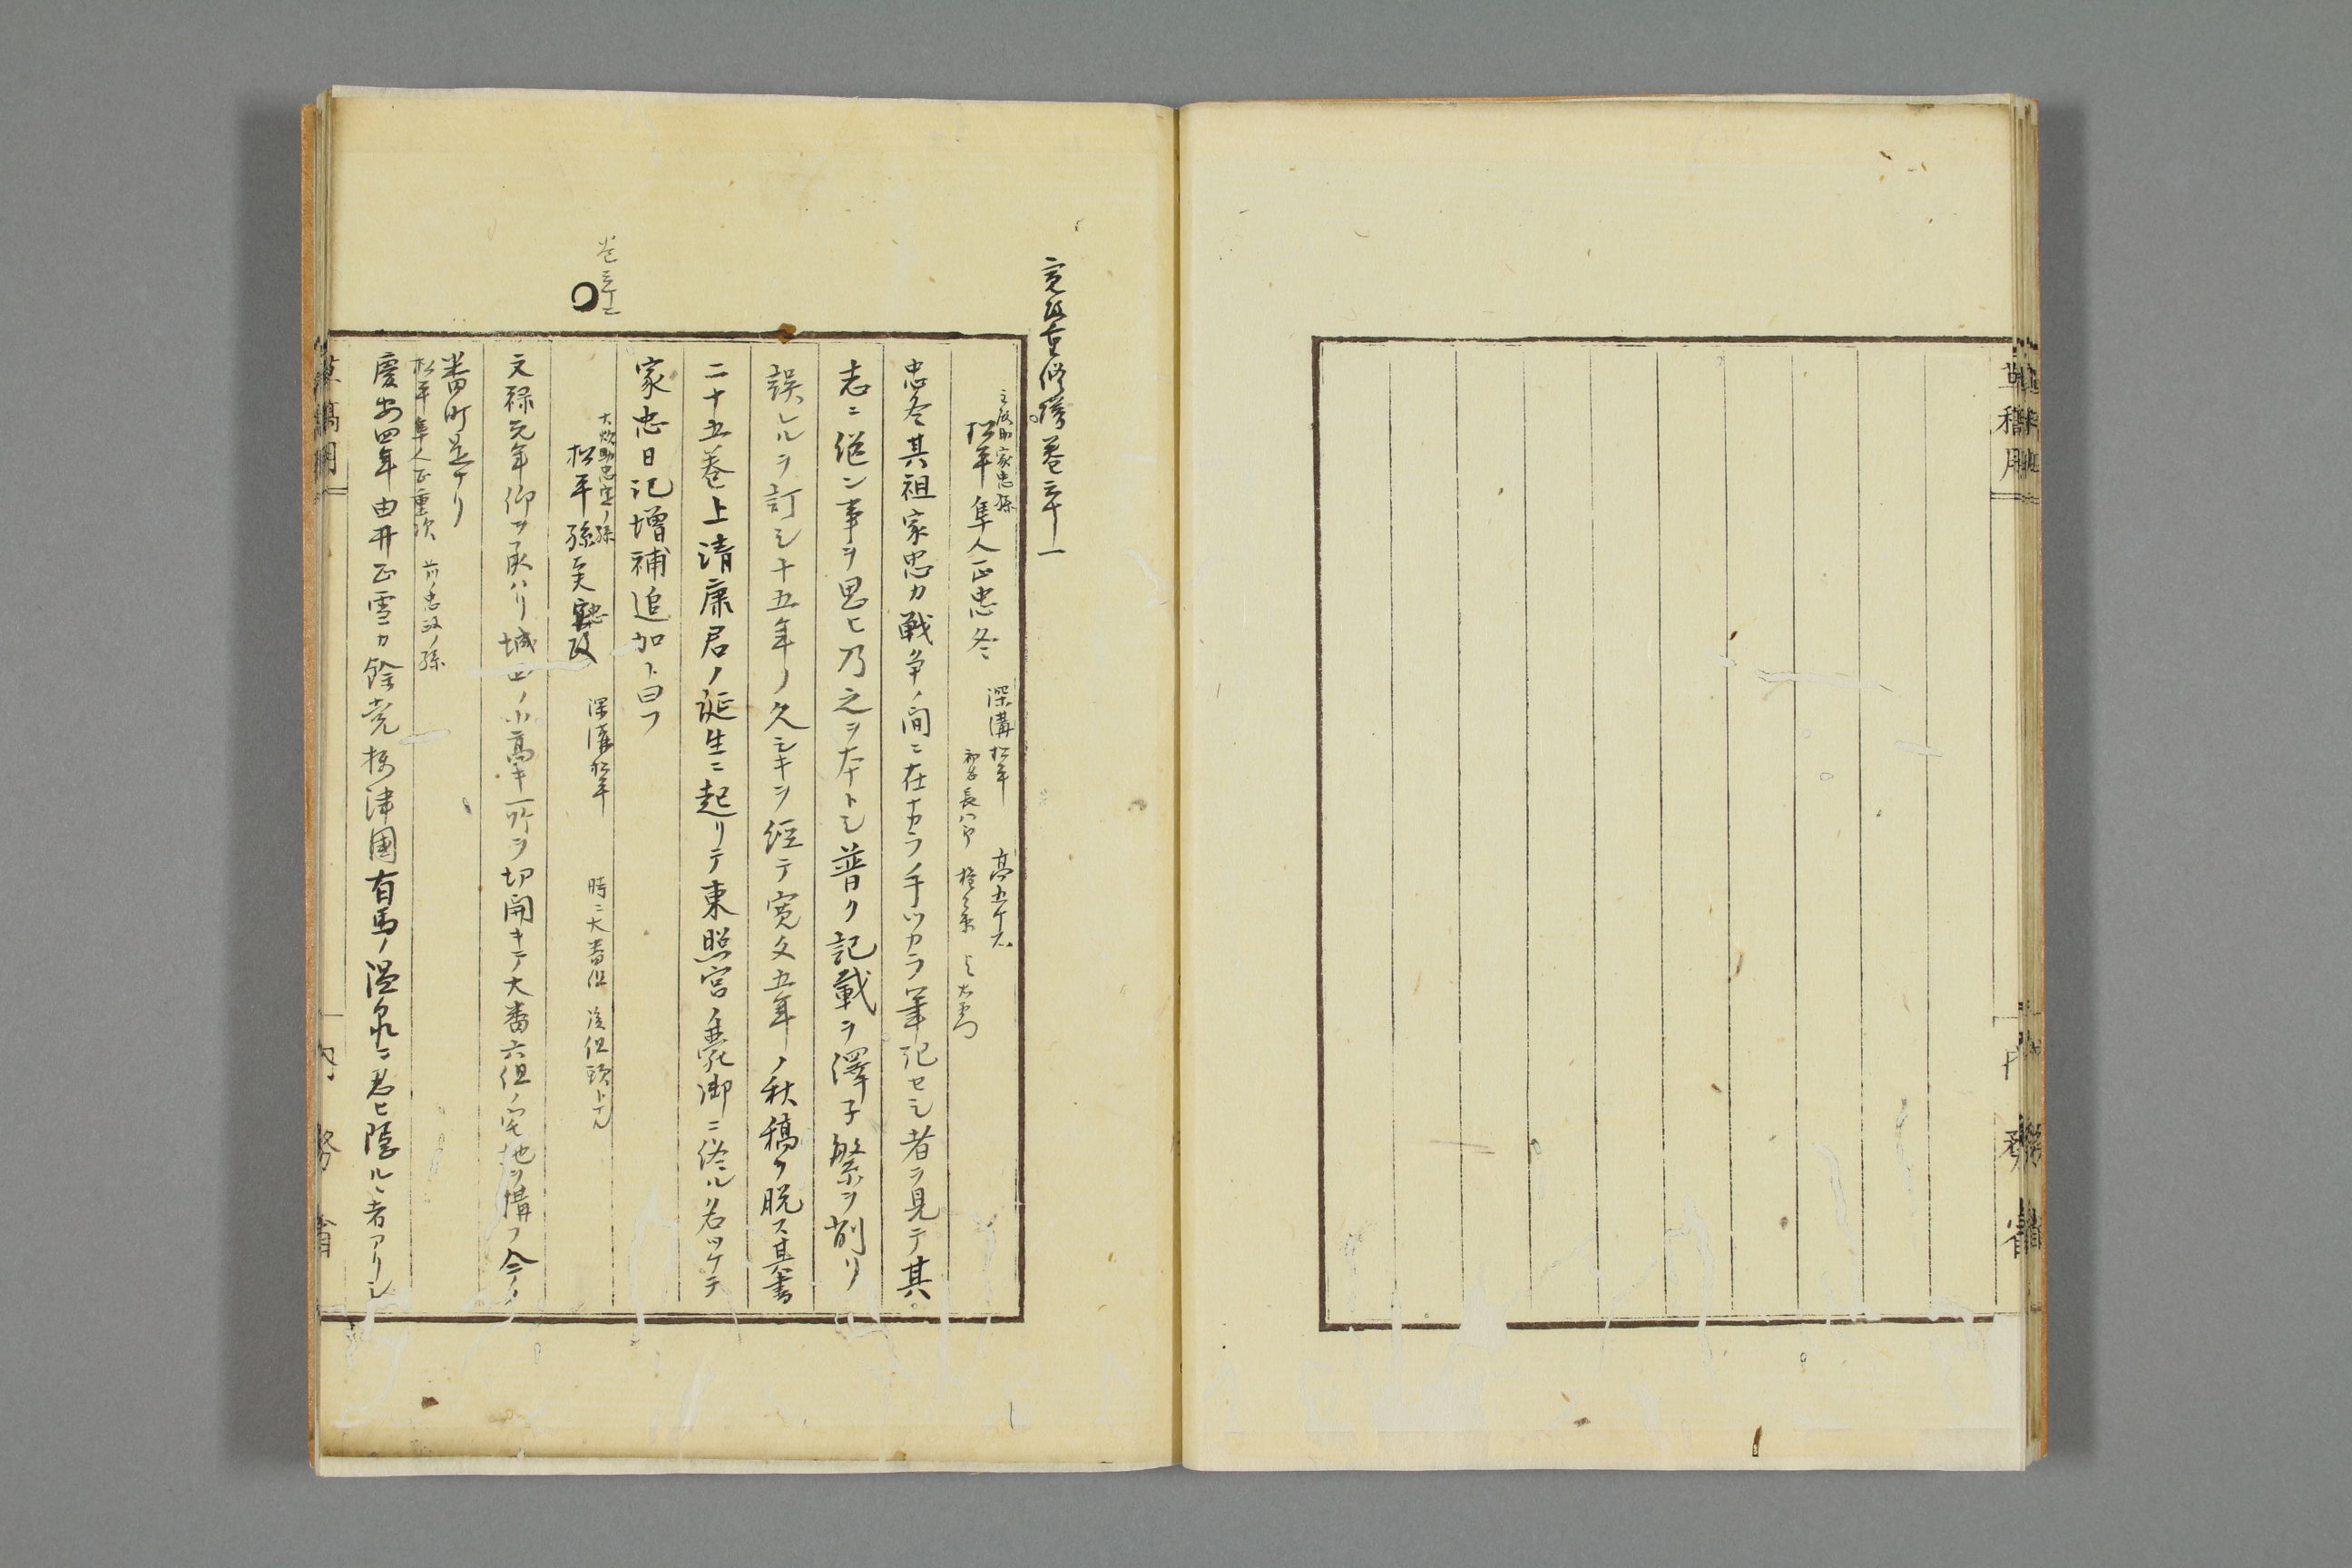 草稿用
内務省
寛政重修譜巻三十一
主殿助家忠孫
松平隼人正忠冬
深溝松平
忠冬其祖家忠カ戦争ノ間ニ在ナカラ手ツカラ筆記セシ者ヲ見テ其
志ニ従ン事ヲ思ヒ乃之ヲ本トシ普ク記載ヲ澤子繁ヲ削リ
誤レルヲ訂シ十五年ノ久シキヲ經テ寛文五年ノ秋稿ヲ脱ス其書
二十五巻上清康君ノ誕生ニ起リテ東照宮ノ薨御ニ終ル名ツケテ
家忠日記増補追加ト曰フ
巻三十一
大炊助忠定ノ孫
松平孫太夫忠政
深溝松平
時ニ大番組 後組頭トナル
文禄元年仰ヲ承ハリ城西ノ小高キ所ヲ切開キテ大番六組ノ宅地ヲ構フ今ノ
番町是ナリ
松平隼人正重次 前ノ忠政ノ孫
慶安四年由井正雪カ餘党摂津國有馬ノ温泉ニ忍ヒ隠ルヽ者アリシ
草稿用
内務省